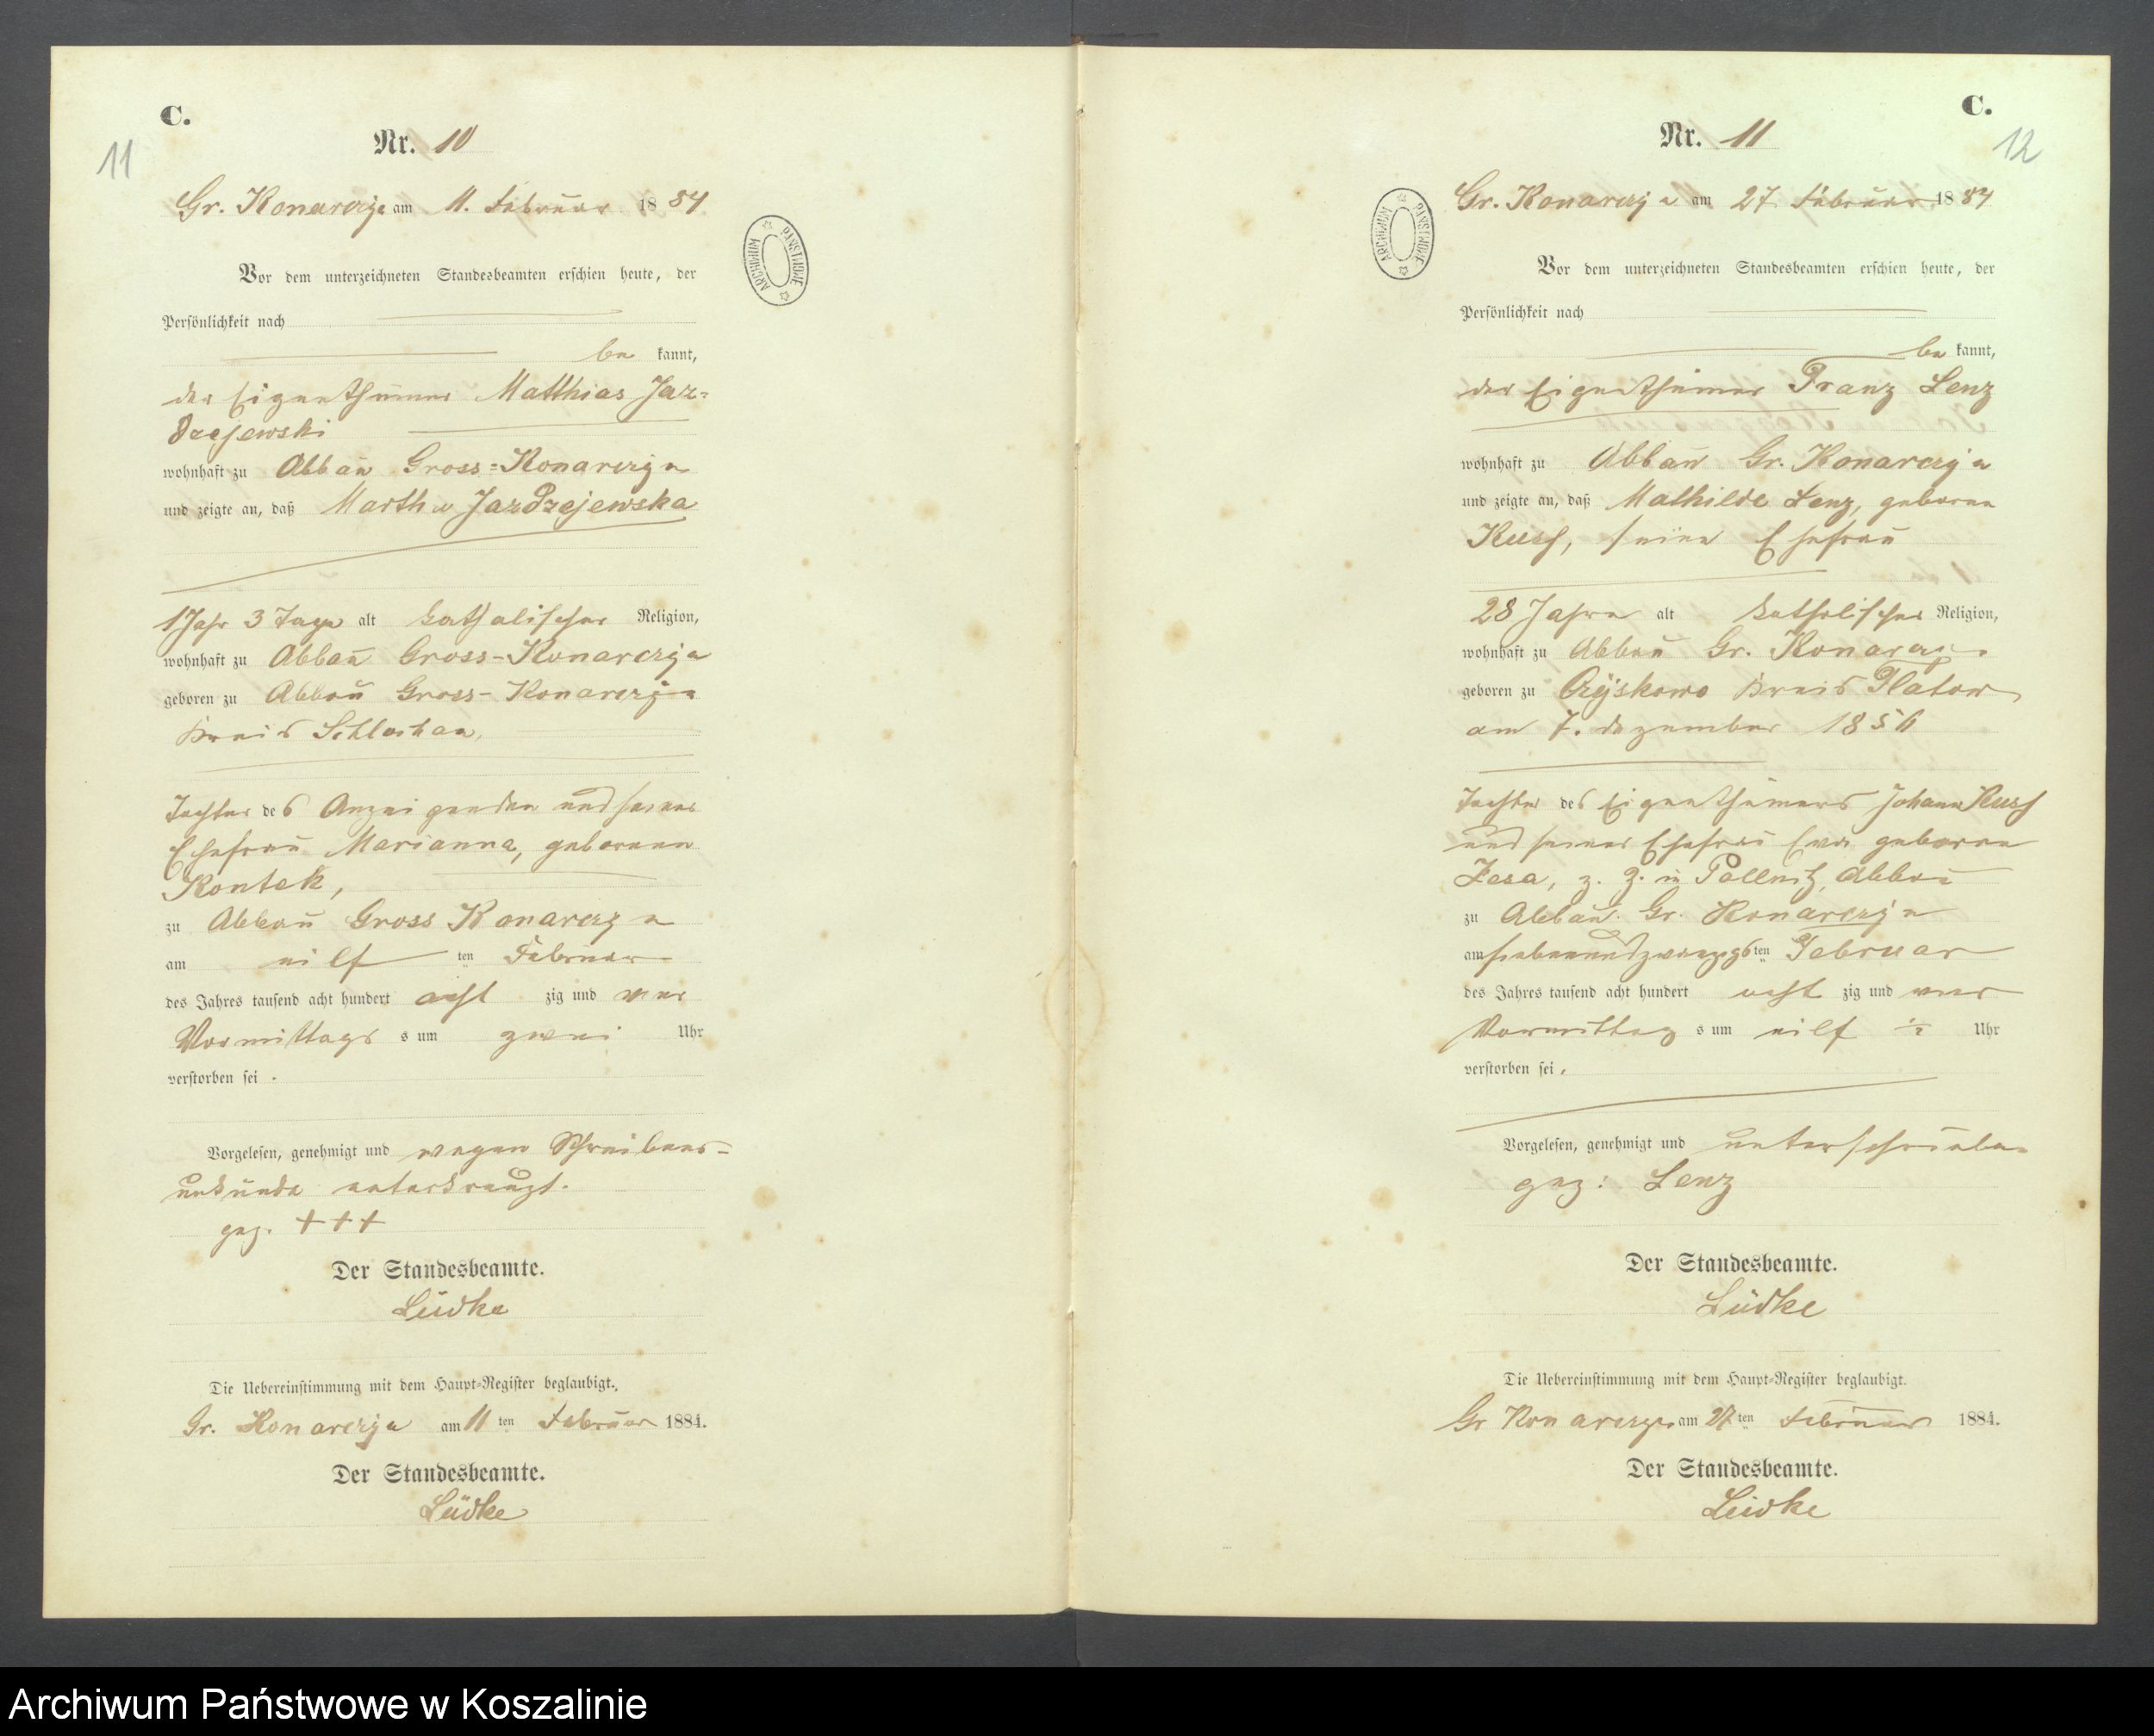 C.
11
Nr. 10
Gr. Konarczyn am 11. Februar 1884
Vor dem unterzeichneten Standesbeamten erschien heute, der
Persönlichkeit nach
be kannt,
der Eigenthümer Matthias Jaz=
drzejewski
wohnhaft zu Abbau Gross=Konarczyn
und zeigte an, daß Martha Jazdrzejewska
1 Jahr 3 Tage alt katholischer Religion,
wohnhaft zu Abbau Gross-Konarczyn
geboren zu Abbau Gross-Konarczyn
Kreis Schlochau,
Tochter des Anzeigenden und seiner
Ehefrau Marianna, geborenen
Kontek,
zu Abbau Gross Konarczyn
am eilf ten Februar
des Jahres tausend acht hundert acht zig und vier
Vormittags s um zwei Uhr
verstorben sei.
Vorgelesen, genehmigt und wegen Schreibens-
unkunde unterkreuzt.
gez. +++
Der Standesbeamte.
Lüdke
Die Uebereinstimmung mit dem Haupt-Register beglaubigt.
Gr. Konarczyn am 11 ten Februar 1884.
Der Standesbeamte.
Lüdke
C.
12
Nr. 11
Gr. Konarczyn am 27. Februar 1884
Vor dem unterzeichneten Standesbeamten erschien heute, der
Persönlichkeit nach
be kannt,
der Eigenthümer Franz Lenz
wohnhaft zu Abbau Gr. Konarczyn
und zeigte an, daß Mathilde Lenz, geborene
Kusch, seine Ehefrau
28 Jahre alt katholischer Religion,
wohnhaft zu Abbau Gr. Konarczyn
geboren zu Kreis Flatow
am 7. Dezember 1856
Tochter des Eigenthümers Johann Kusch
und seiner Ehefrau Eva geborene
z. Z. in Pollnitz, Abbau
zu Abbau Gr. Konarczyn
am siebenundzwanzigsten Februar
des Jahres tausend acht hundert acht zig und vier
Vormittag s um eilf ½ Uhr
verstorben sei.
Vorgelesen, genehmigt und unterschrieben
gez: Lenz
Der Standesbeamte.
Lüdke
Die Uebereinstimmung mit dem Haupt-Register beglaubigt.
Gr Konarczyn am 27 ten Februar 1884.
Der Standesbeamte.
Lüdke
ARCHIWUM PAŃSTWOWE
ARCHIWUM PAŃSTWOWE
Archiwum Państwowe w Koszalinie